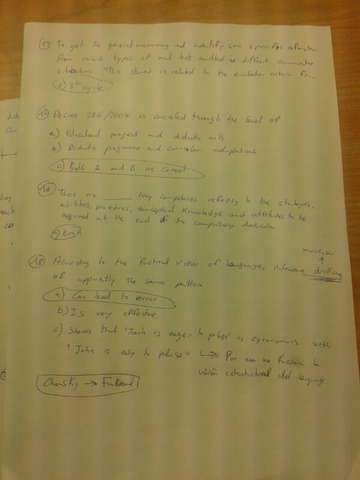 13 To get the general meaning and identify some specific information
from various types of oral texts emitted in different communicative
situations. "This statement is related to the evaluation criteria for:
c) 3rd cycle
15 Decree 286/2007 is concreted through the level of
a) Educational project and didactic units
b) Didactic programme and curricular adaptations
c) Both A and B are correct
16 There are ____ key competences referring to the strategies,
abilities, procedures, conceptual knowledge and attitudes to be
acquired at the end of the compulsory education
Eight
18 According to the functional views of language, intensive drilling
of apparently the same pattern
a) Can lead to error
b) Is very effective
c) Shows that 'John is eager to please' is synonymous with
"John is easy to please" → Por eso no funciona la
visión estructural del lenguaje
Chomsky → Funcional